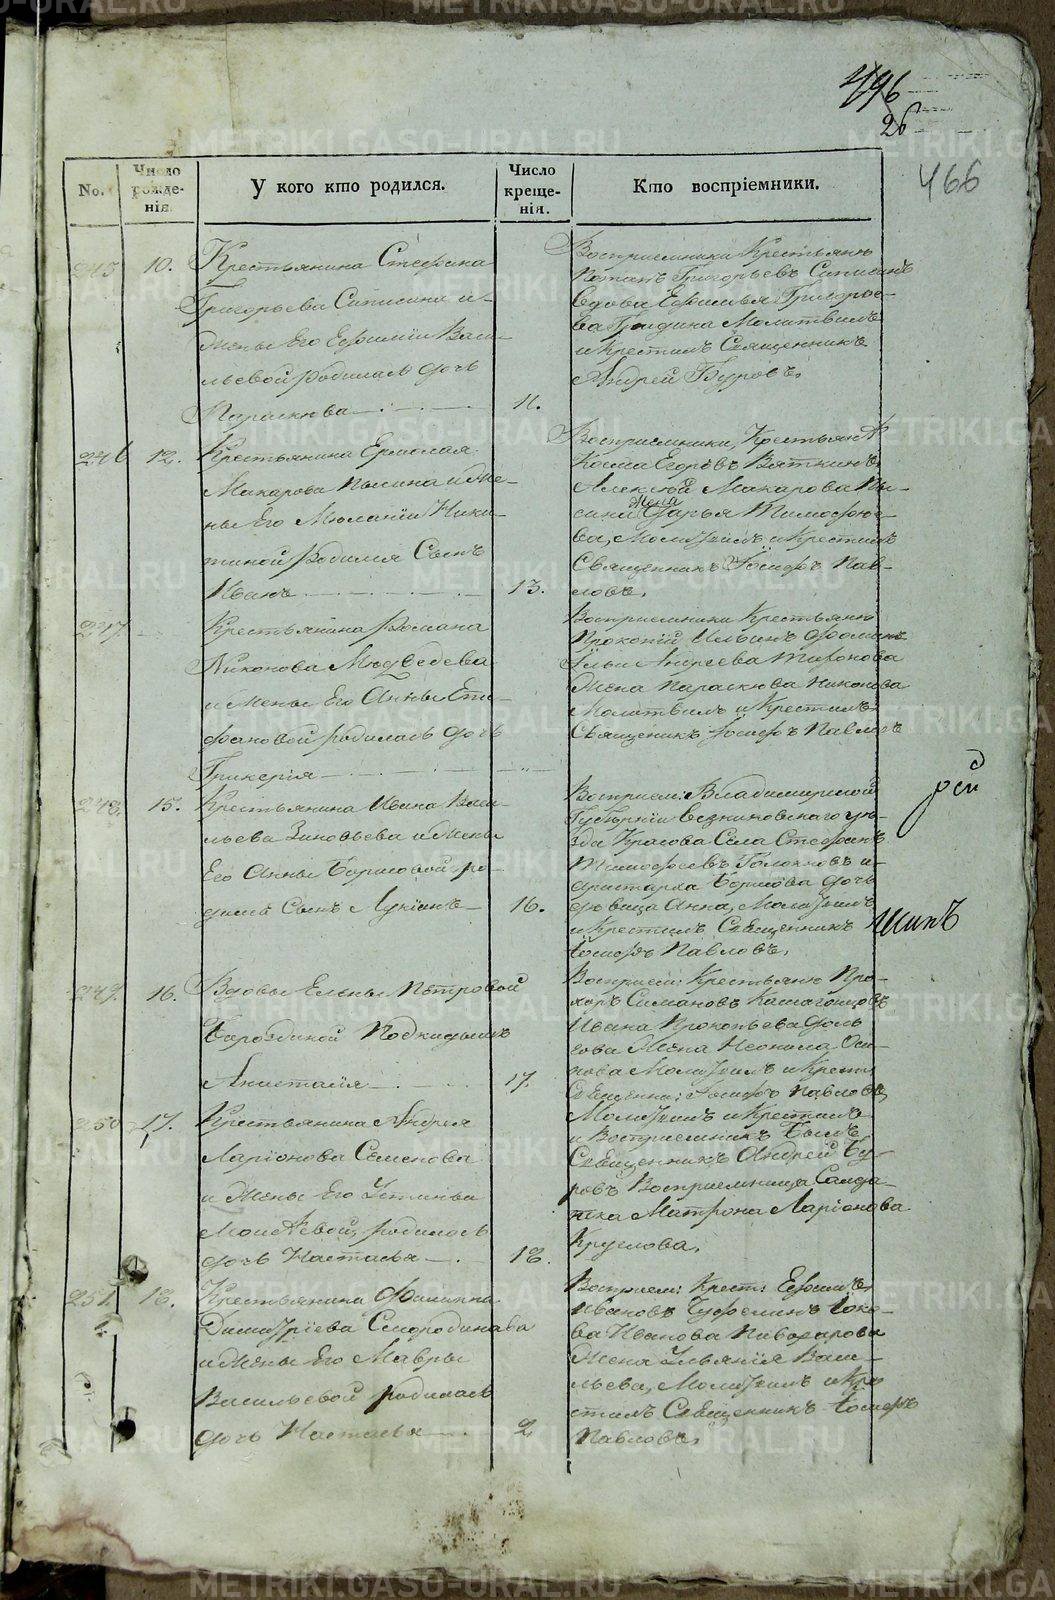 496
26
466
No.
Число рожде-нія.
У кого кто родился.
Число креще-нія.
Кто воспріемники.
245
10.
Крестьянина Стефана
Григорьева Сиписина и
жены Его Ефиміи Васи-
льевой родилась дочь
Параскова
11.
Восприемники Крестьянъ
Потапъ Григорьевъ Сиписинъ
вдова Ефимья Григорье-
ва Молитвилъ
и Крестилъ Священникъ
Андрей Буровъ.
246
12.
Крестьянина Ермолая
Макарова и же-
ны Его Меланіи Ники-
тиной родился Сынъ
Иванъ
13.
Восприемники, Крестьян
Косма Егоровъ Вяткинъ,
Алексей Макарова
жена Дарья Тимофее-
ва, Молитвилъ и Крестилъ
Священникъ Іосифъ Пав-
ловъ.
247
Крестьянина Романа
Никонова Медведева
и жены Его Анны Епи-
фановой родилась дочь
Гликерія
Восприемники Крестьян
Прокопій Ильинъ
Ильи Андреева Тифонова
Жена Параскова Никонова
Молитвилъ и Крестилъ
Священикъ Іосифъ Павловъ
248.
15.
Крестьянина Ивана Васи-
льева Зиновьева и Жены
Его Анны Борисовой ро-
дился Сынъ Лукіанъ
16.
Восприем: Владимирской
Губерніи Вязниковскаго уѣ-
зда Красова Села Стефанъ
Тимофеевъ и
Аристарха Борисова дочь
девица Анна, Молитвилъ
и Крестилъ Священникъ
Іосифъ Павловъ.
рсй
шинъ
249.
16.
Вдовы Елены Петровой
Бороздиной Подкидышъ
Анастасія
17.
Восприем: Крестьян Про-
хоръ Симановъ
Ивана Прокопьева
жена Неонила Оси-
пова Молитвилъ и Крести
Священни: Іосифъ Павловъ,
250
17.
Крестьянина Андрея
Ларіонова Семенова
и Жены Его Устиньи
Моисѣевой, родилась
дочь Настасья
18.
Молитвилъ и Крестилъ
и Восприемникъ былъ
Священникъ Андрей Бу-
ровъ Восприемница Солда-
тка Матрона Ларіонова
Круглова.
251.
18.
Крестьянина Филиппа
Димитріева Смородинова
и Жены Его Мавры
Васильевой родилась
дочь Настасья
2
Восприем: Крест: Ефимъ
Ивановъ Іоко-
ва Иванова Пивоварова
Жена Ульянія Васи-
льева, Молитвилъ и Кре
стилъ Священникъ Іосифъ
Павловъ.
METRIKI.GASO-URAL.RU